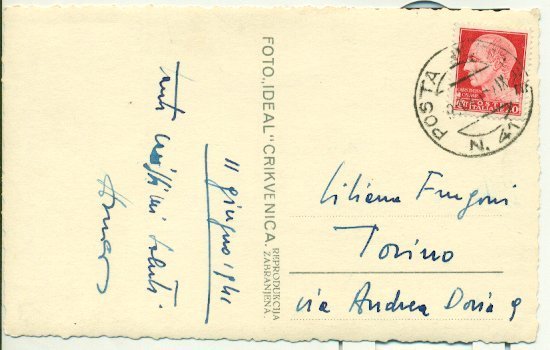 11 giugno 1941
Tanti saluti
FOTO „IDEAL" CRIKVENICA.
REPRODUKCIJA
ZABRANJENA.
POSTA
N. 41
POSTE ITALIANE
Liliana Frugoni
Torino
via Andrea Doria 9